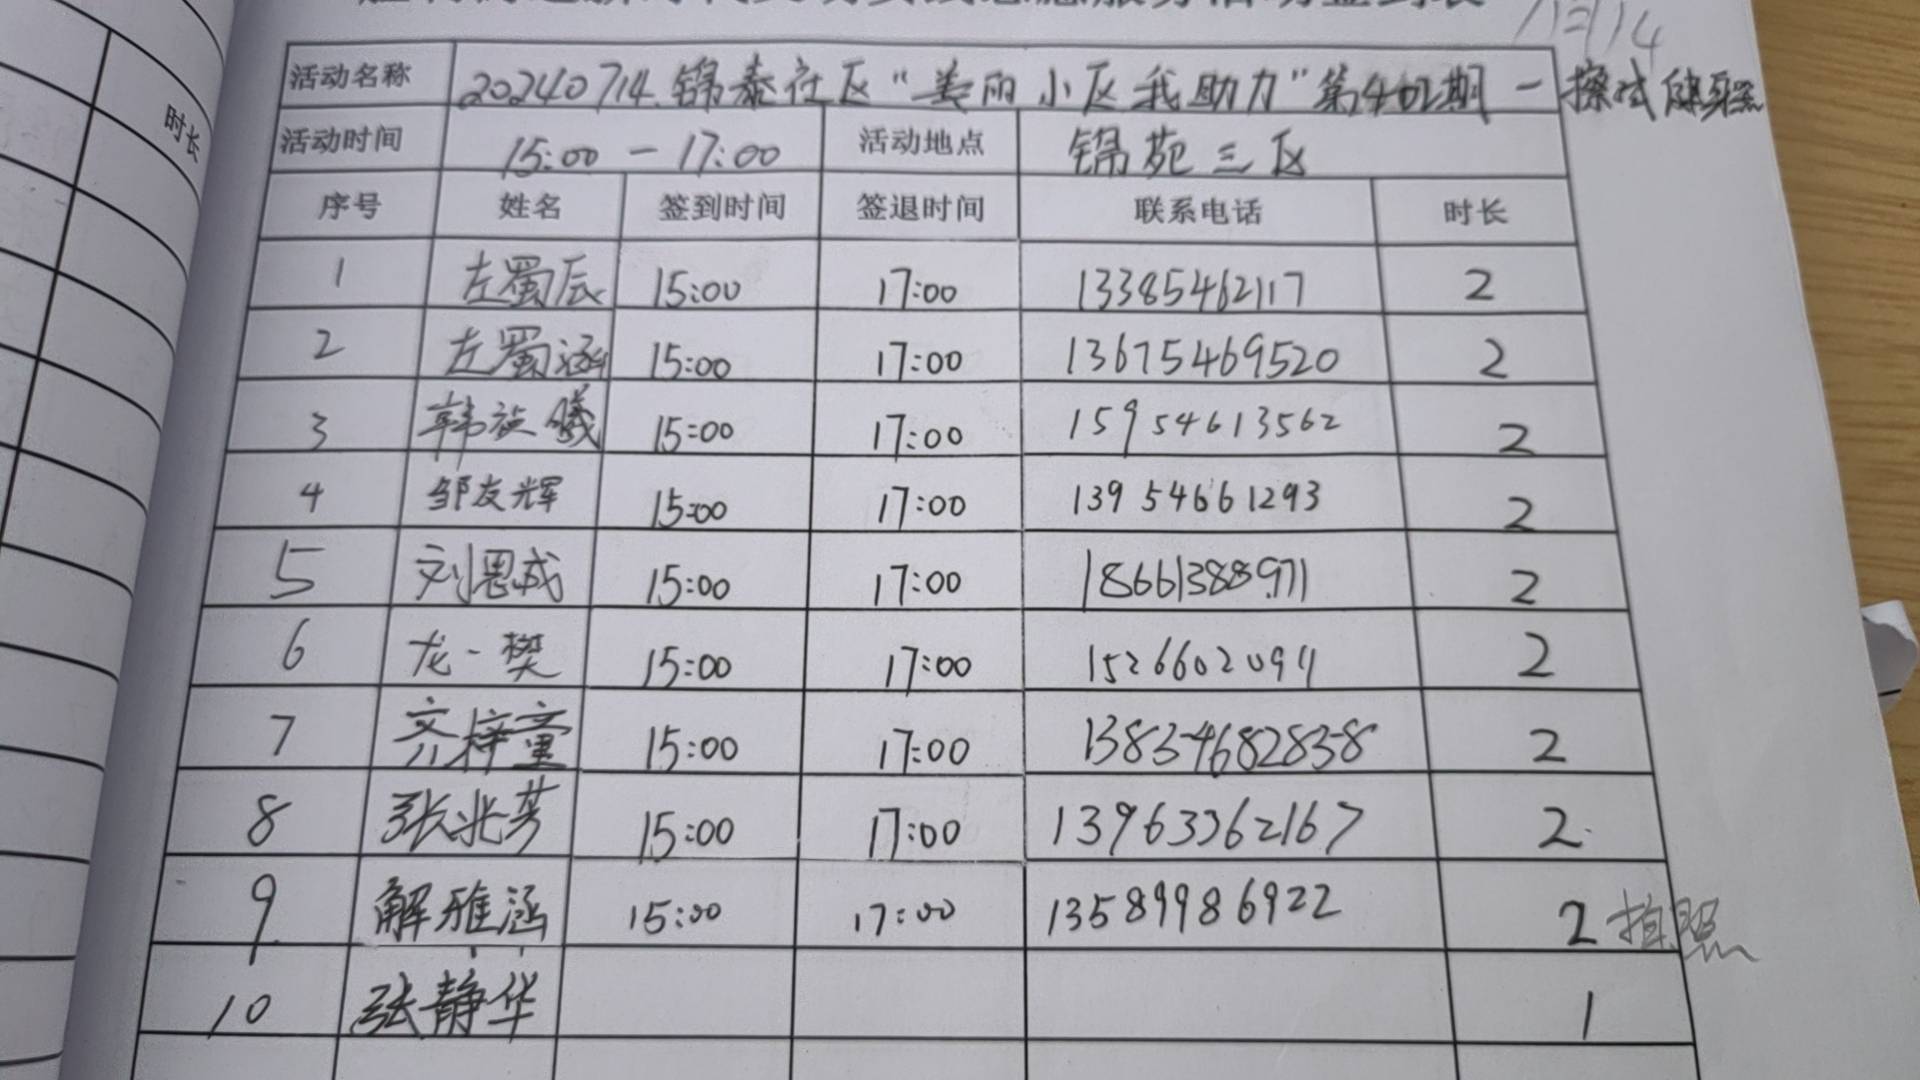 时长
活动名称 20240714.锦泰社区“美丽小区我助力”第402期一擦拭健身器
活动时间 15:00 — 17:00 活动地点 锦苑三区
序号 姓名 签到时间 签退时间 联系电话 时长
1 左蜀辰 15:00 17:00 13385462117 2
2 左蜀涵 15:00 17:00 13675469520 2
3 韩旋曦 15:00 17:00 15954613562 2
4 邹友辉 15:00 17:00 13954661293 2
5 刘恩成 15:00 17:00 18661388971 2
6 龙一樊 15:00 17:00 15266020911 2
7 齐梓童 15:00 17:00 13834682838 2
8 张兆芳 15:00 17:00 13963362167 2
9 解雅涵 15:00 17:00 13589986922 2 拍照
10 张静华 1